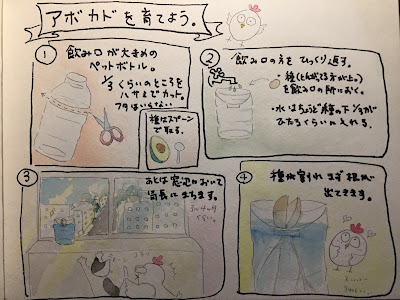 アボカドを育てよう。
①
飲み口が大きめの
ペットボトル。
1/3 くらいのところを
ハサミでカット。
フタはいらない
種はスプーン
で取る。
②
飲み口の方を ひっくり返す。
・種(とんがってる方が上。)
を飲み口の所におく。
・水はちょうど種の下 1/3が
ひたるくらいに入れる。
③
あとは窓辺において
気長にまちます。
④
種が割れ まず根が
出てきます。